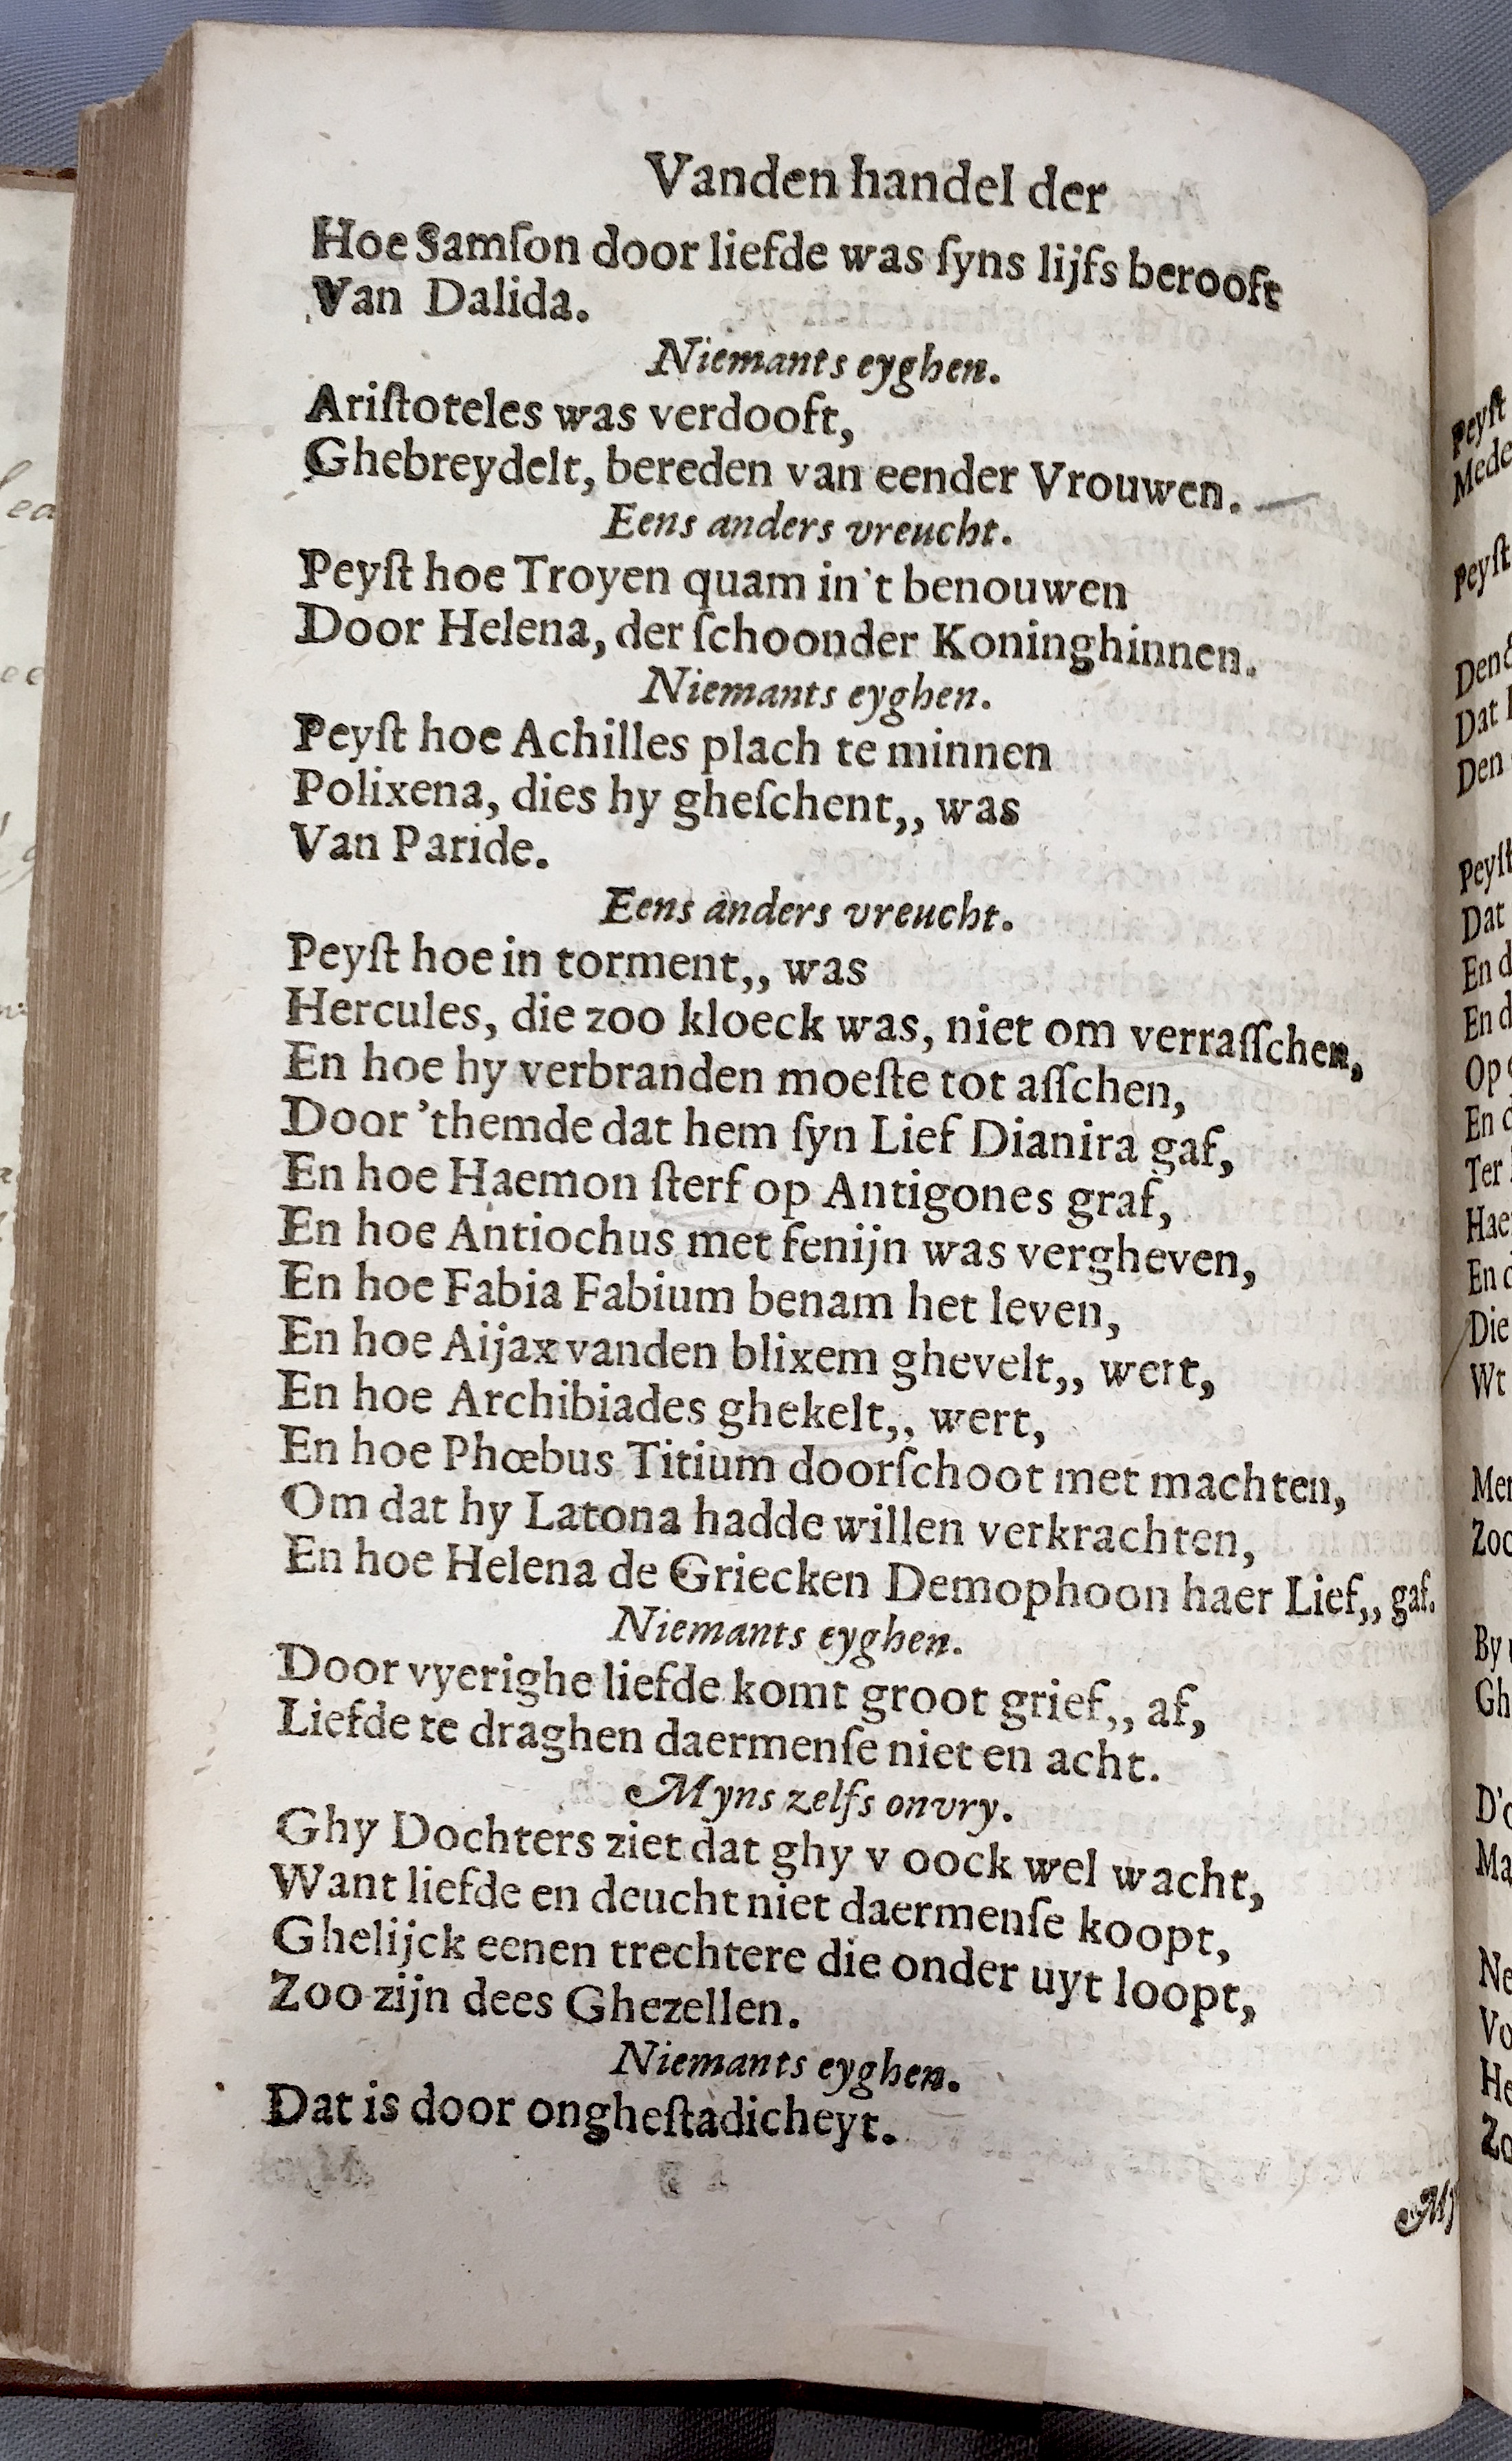 Vanden handel der
Hoe Samſon door liefde was ſyns lijfs berooft
Van Dalida.
Niemants eyghen.
Ariſtoteles was verdooft,
Ghebreydelt, bereden van eender Vrouwen.
Eens anders vreucht.
Peyſt hoe Troyen quam in't benouwen
Door Helena, der ſchoonder Koninghinnen.
Niemants eyghen.
Peyſt hoe Achilles plach te minnen
Polixena, dies hy gheſchent,, was
Van Paride.
Eens anders vreucht.
Peyſt hoe in torment,, was
Hercules, die zoo kloeck was, niet om verraſſchen,
En hoe hy verbranden moeſte tot aſſchen,
Door 'themde dat hem ſyn Lief Dianira gaf,
En hoe Haemon ſterf op Antigones graf,
En hoe Antiochus met fenijn was vergheven,
En hoe Fabia Fabium benam het leven,
En hoe Aijax vanden blixem ghevelt,, wert,
En hoe Archibiades ghekelt,, wert,
En hoe Phœbus Titium doorſchoot met machten,
Om dat hy Latona hadde willen verkrachten,
En hoe Helena de Griecken Demophoon haer Lief,, gaf.
Niemants eyghen.
Door vyerighe liefde komt groot grief,, af,
Liefde te draghen daermenſe niet en acht.
Myns zelfs onvry.
Ghy Dochters ziet dat ghy v oock wel wacht,
Want liefde en deucht niet daermenſe koopt,
Ghelijck eenen trechtere die onder uyt loopt,
Zoo zijn dees Ghezellen.
Niemants eyghen.
Dat is door ongheſtadicheyt.
Peyſt
Mede
Peyſt
Dat
Den
Peyſt
Dat
En d
En d
Op
En
Ter
Hae
En
Die
Wt
Mer
Zoo
By
Gh
D'o
Ma
Ne
Vo
He
Zo